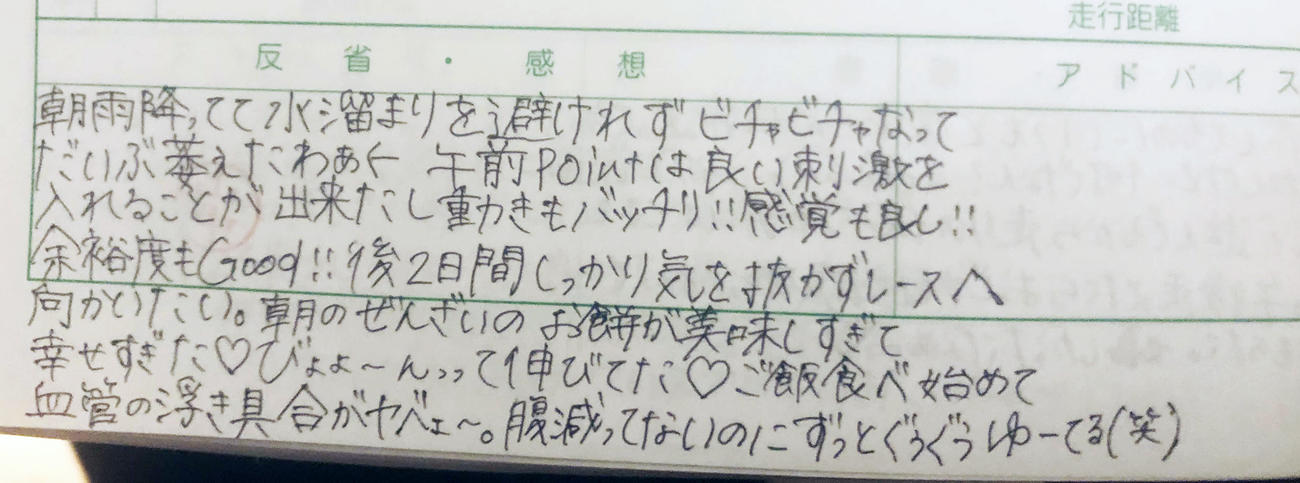 走行距離
反省・感想
アドバイス
朝雨降ってて水溜まりを避けれずビチャビチャなって
だいぶ萎えたわぁ← 午前Pointは良い刺激を
入れることが出来たし動きもバッチリ!!感覚も良し!!
余裕度もGood!!後2日間しっかり気を抜かずレースへ
向かいたい。朝のぜんざいのお餅が美味しすぎて
幸せすぎた♡びよょ〜んっって伸びてた♡ご飯食べ始めて
血管の浮き具合がヤベェ〜。腹減ってないのにずっとぐぅぐぅゆーてる(笑)